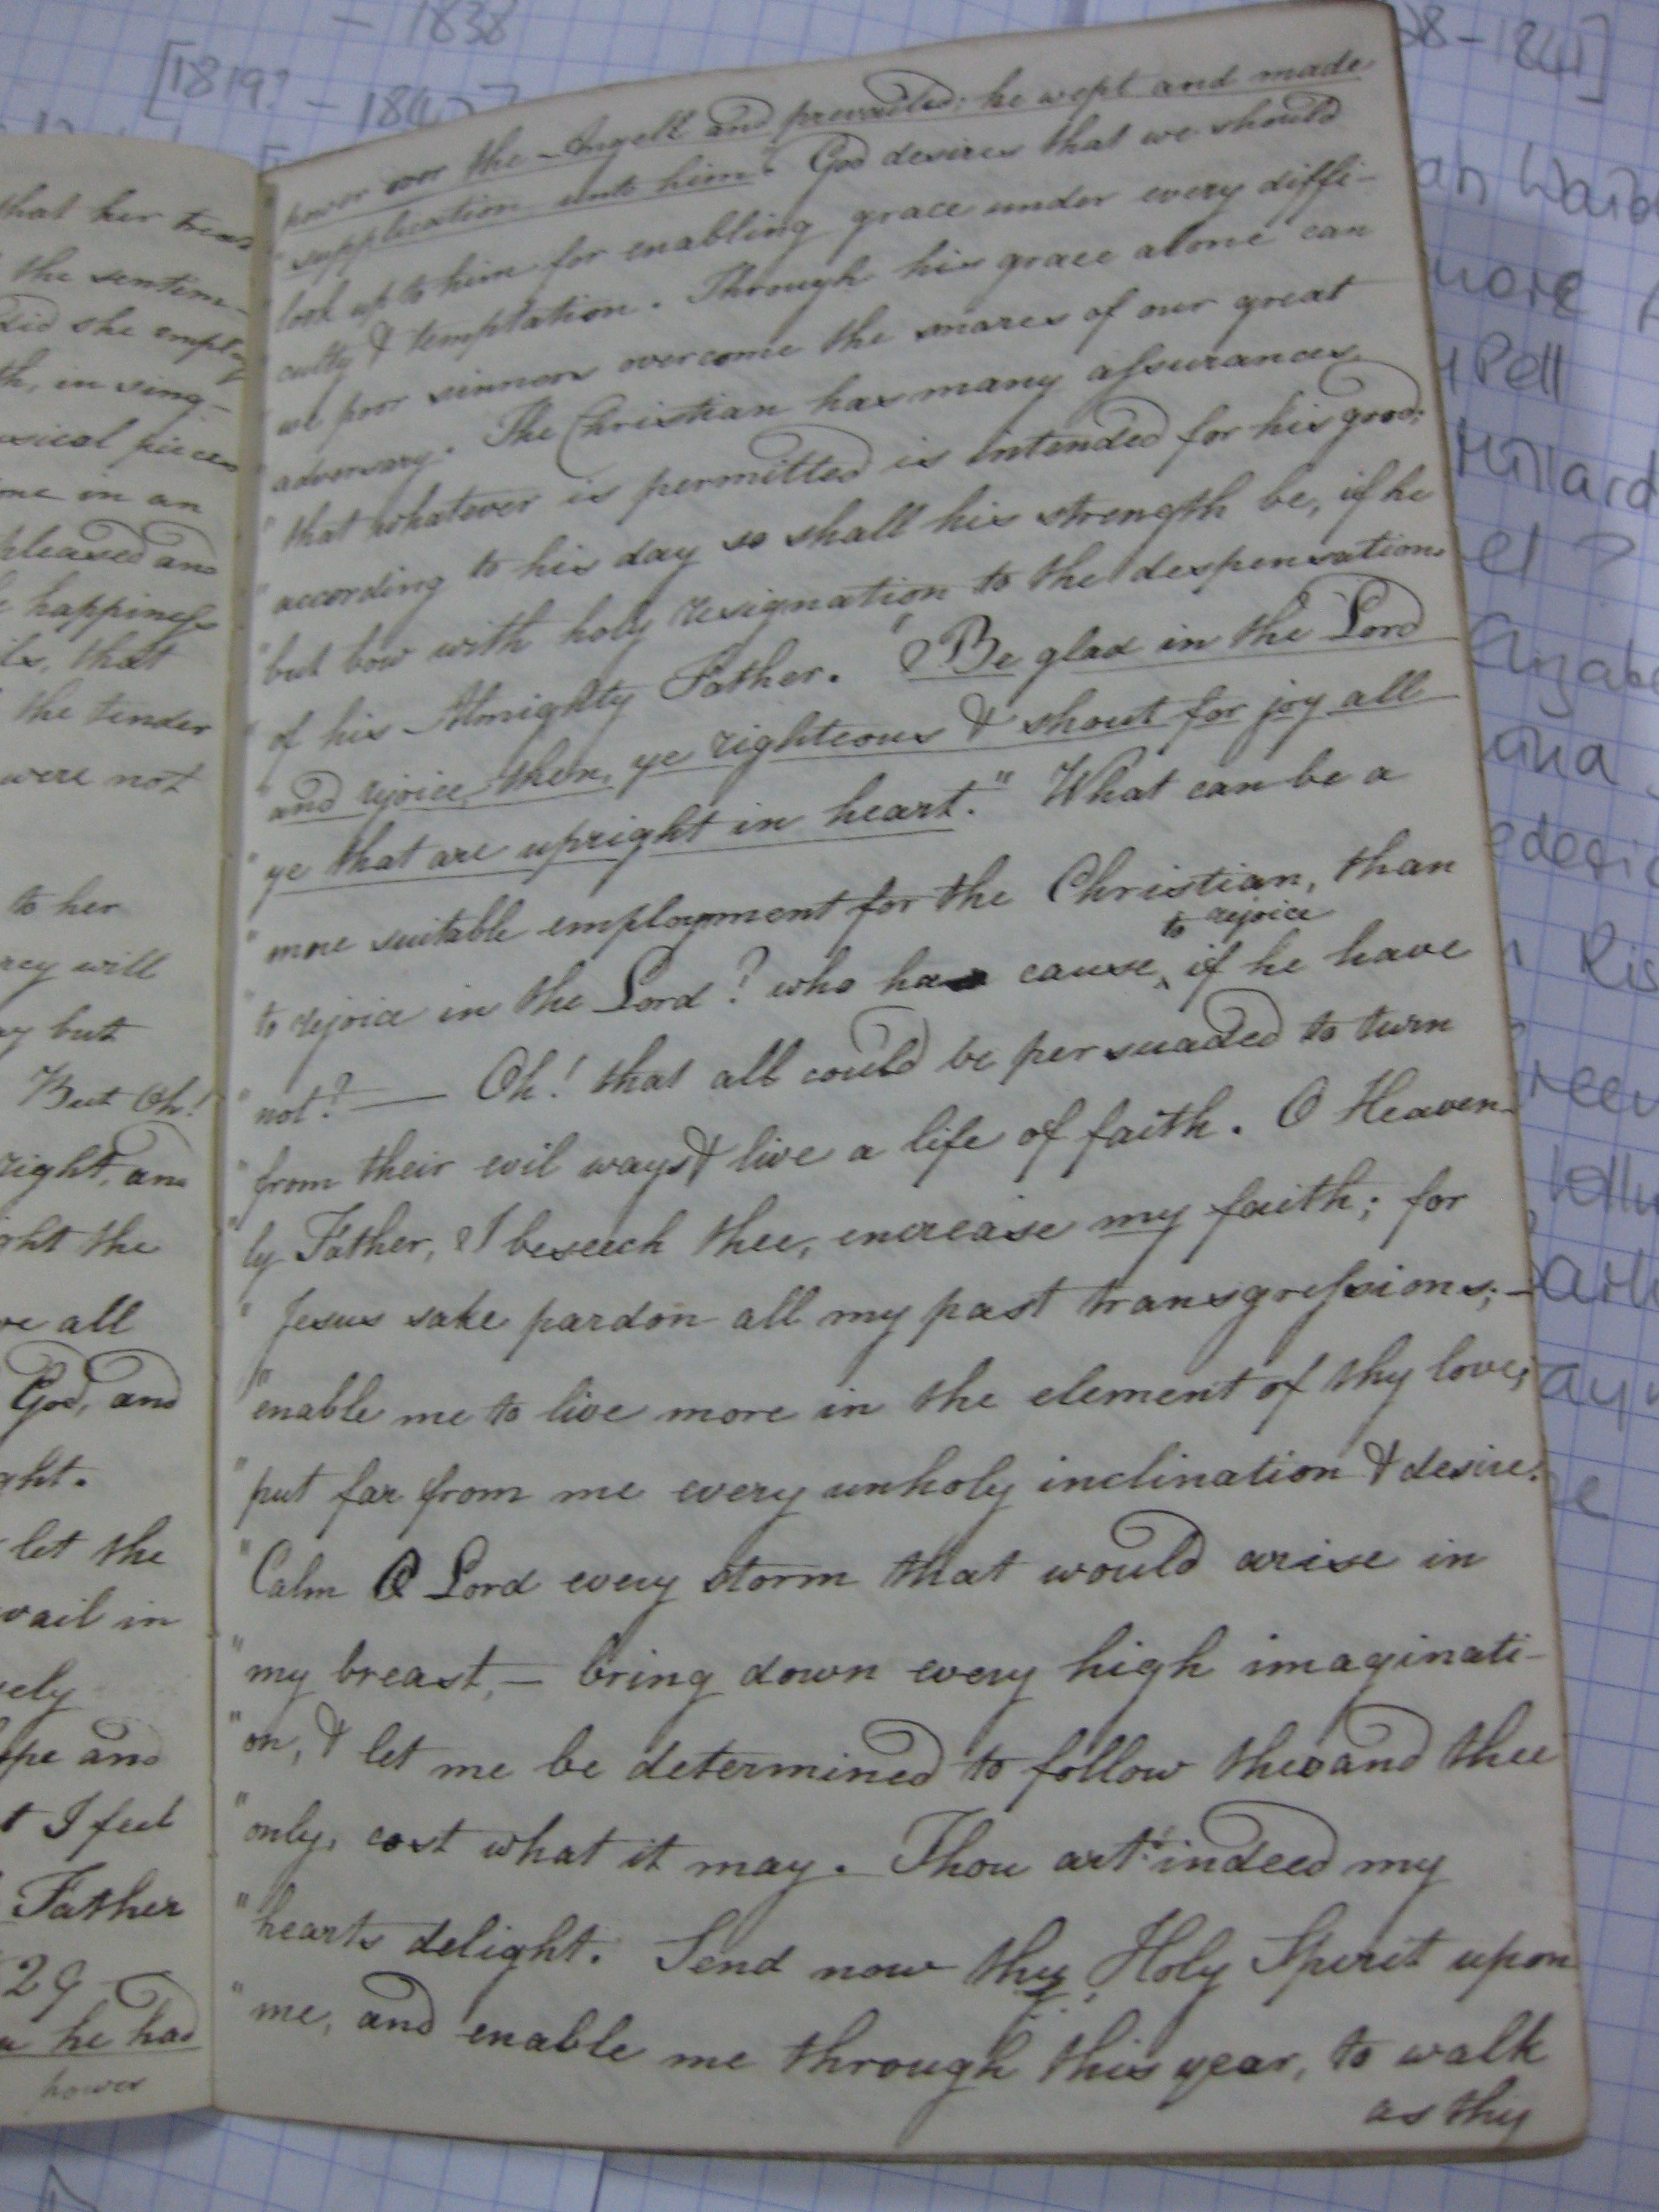 - 1838
[1819? - 184
28-1841]
that her
the sentim-
did she employ
th, in sing-
usical pieces
me in an
pleased and
happiness
that
the tender
were not
to her
will
but
But Oh!
right, and
ght the
all
God, and
ght.
let the
vail in
ely
and
I feel
Father
29
he had
power
"power over the Angell and prevailed: he wept and made
"supplication unto him". God desires that we should
"look up to him for enabling grace under every diffi-
"culty & temptation. Through his grace alone can
"we poor sinners overcome the snares of our great
"adversary. The Christian has many assurances
"that whatever is permitted is intended for his good:
"according to his day so shall his strength be, if he
"but bow with holy resignation to the despensations
"of his Almighty Father. "Be glad in the Lord
"and rejoice then, ye righteous & shout for joy all
"ye that are upright in heart." What can be a
"more suitable employment for the Christian, than
to rejoice
"to rejoice in the Lord? who has cause, if he have
"not? — Oh! that all could be persuaded to turn
"from their evil ways & live a life of faith. O Heaven-
"ly Father, I beseech thee, encrease my faith; for
"Jesus sake pardon all my past transgressions; —
"enable me to live more in the element of thy love;
"put far from me every unholy inclination & desire.
"Calm O Lord every storm that would arise in
"my breast, — bring down every high imaginati-
"on, & let me be determined to follow thee and thee
"only, cost what it may. Thou art indeed my
"hearts delight. Send now thy Holy Spirit upon
"me, and enable me through this year, to walk
as thy
Pell
Millard